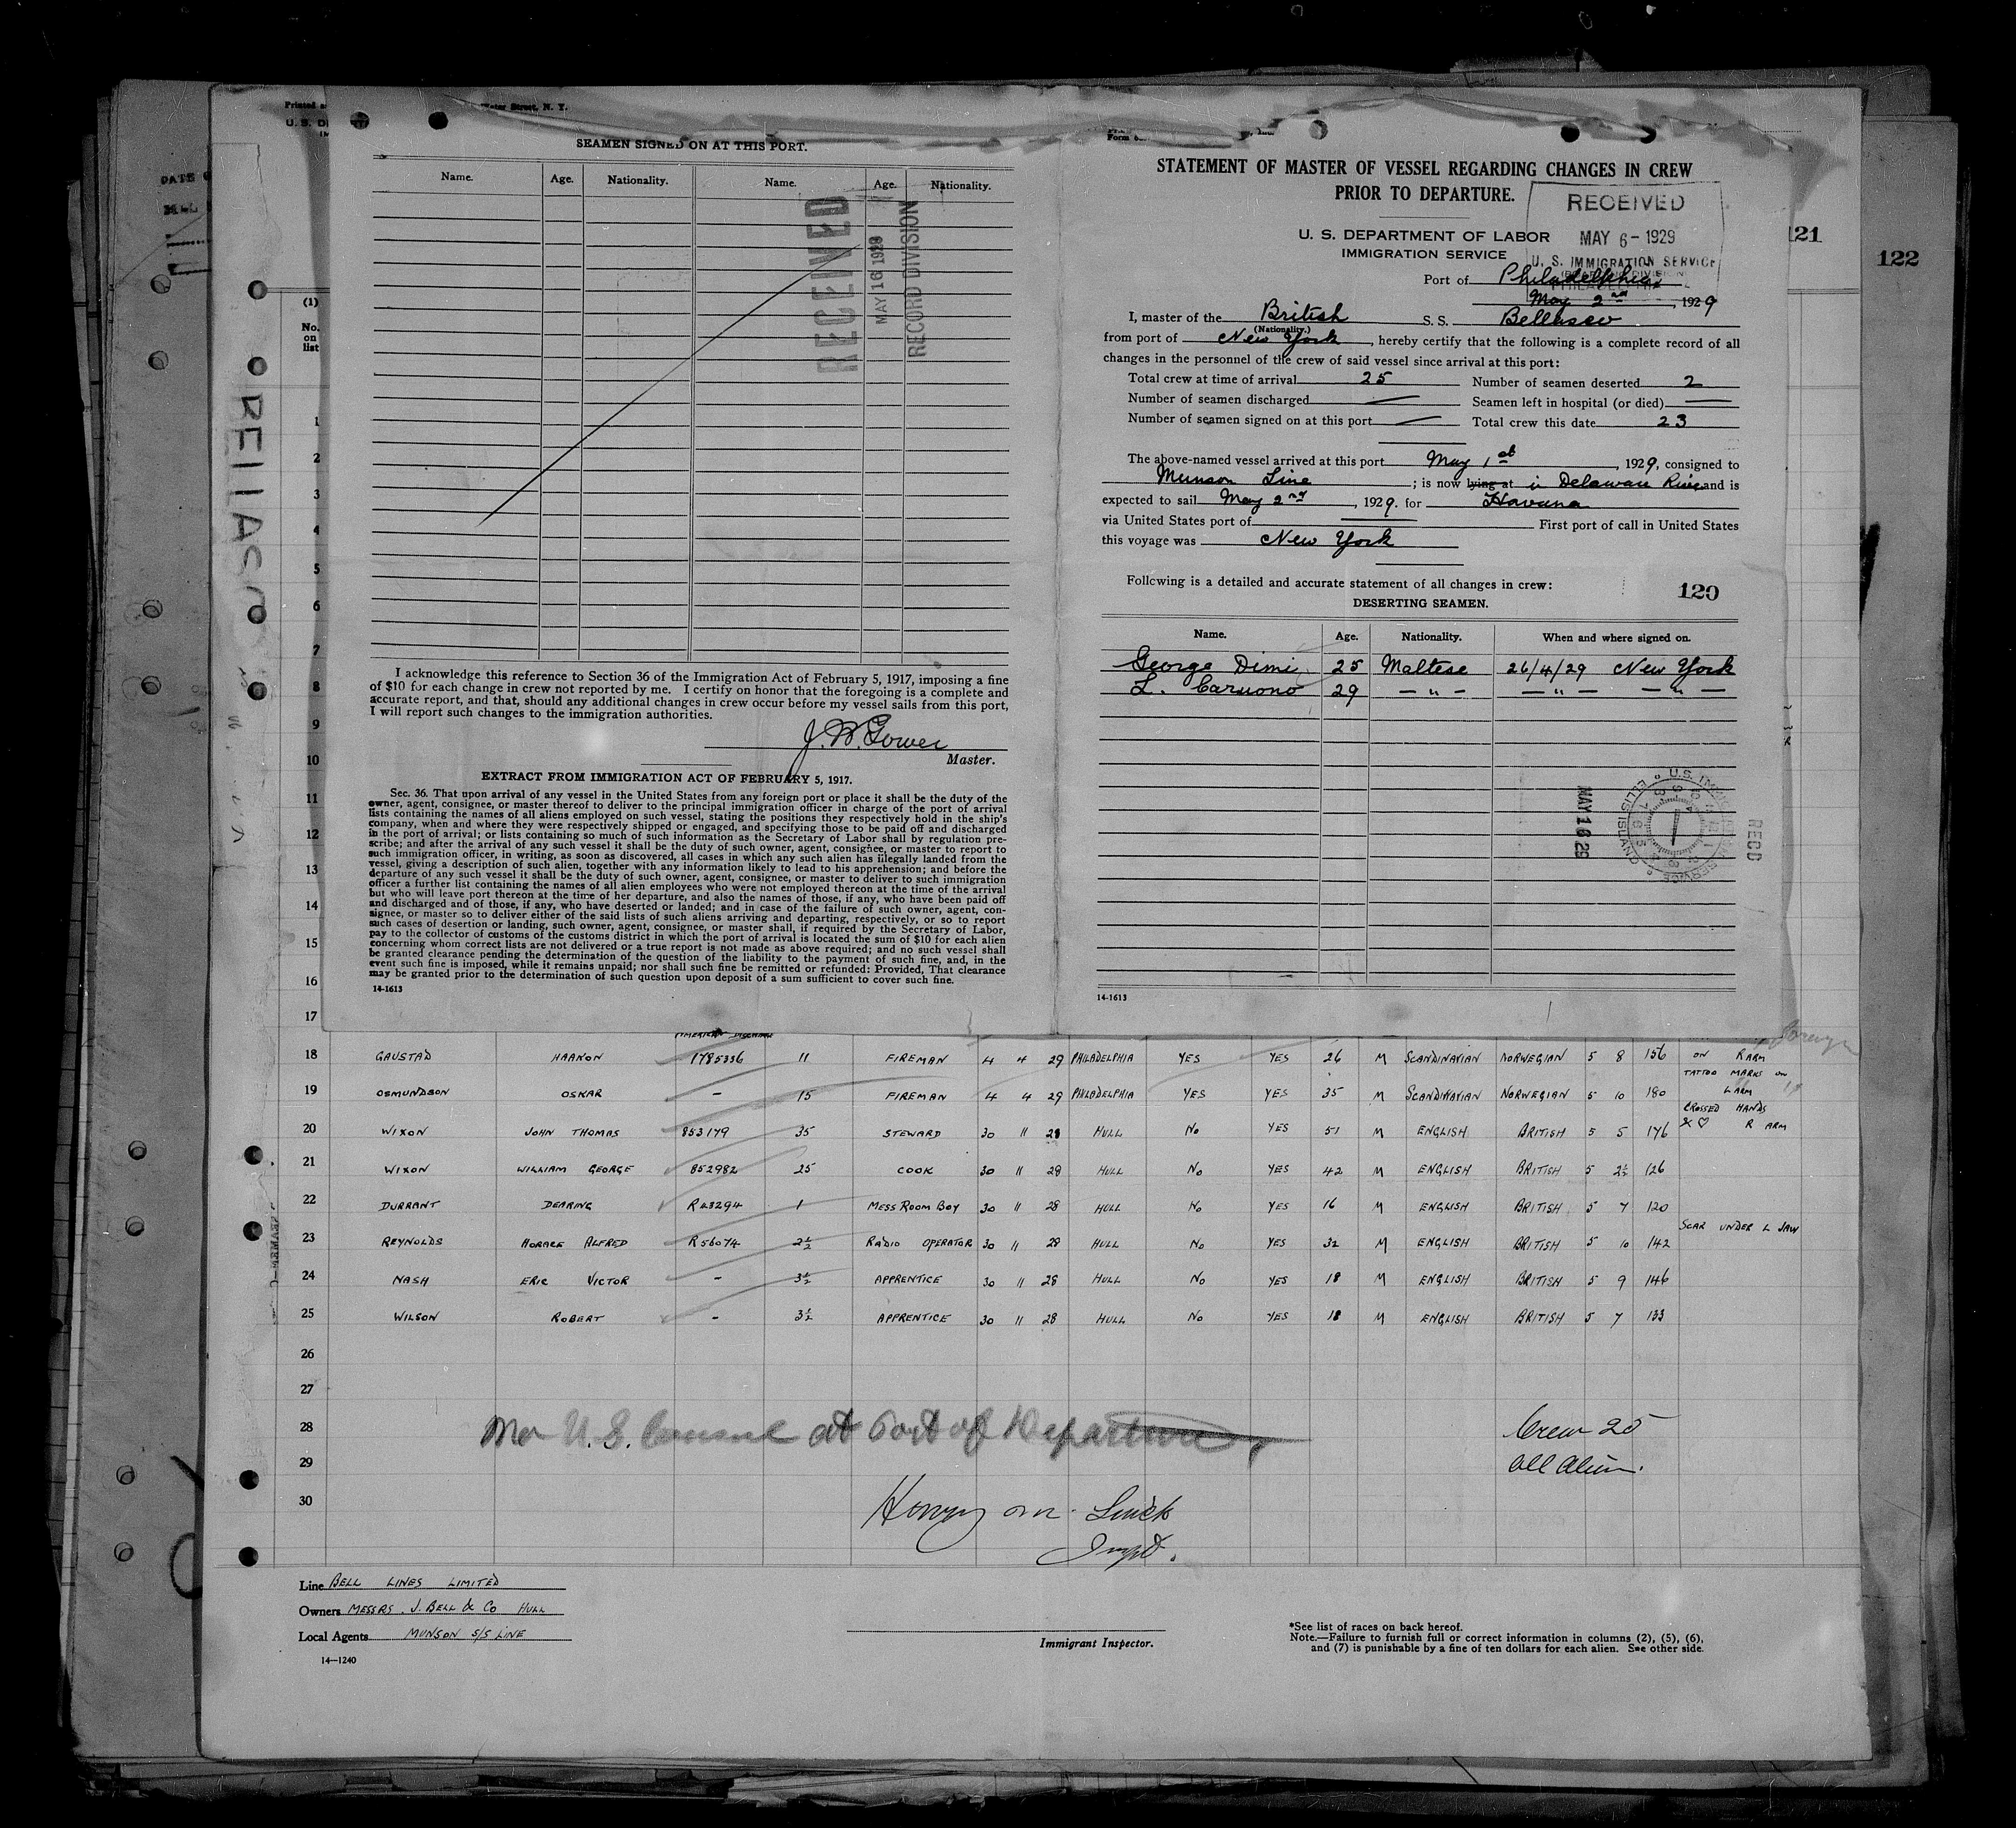 SEAMEN SIGNED ON AT THIS PORT.
Name. Age. Nationality. Name. Age. Nationality.
RECEIVED
MAY 16 1929
RECORD DIVISION
I acknowledge this reference to Section 36 of the Immigration Act of February 5, 1917, imposing a fine
of $10 for each change in crew not reported by me. I certify on honor that the foregoing is a complete and
accurate report, and that, should any additional changes in crew occur before my vessel sails from this port,
I will report such changes to the immigration authorities.
J. W. Gower
Master.
EXTRACT FROM IMMIGRATION ACT OF FEBRUARY 5, 1917.
Sec. 36. That upon arrival of any vessel in the United States from any foreign port or place it shall be the duty of the
owner, agent, consignee, or master thereof to deliver to the principal immigration officer in charge of the port of arrival
lists containing the names of all aliens employed on such vessel, stating the positions they respectively hold in the ship's
company, when and where they were respectively shipped or engaged, and specifying those to be paid off and discharged
in the port of arrival; or lists containing so much of such information as the Secretary of Labor shall by regulation pre-
scribe; and after the arrival of any such vessel it shall be the duty of such owner, agent, consignee, or master to report to
such immigration officer, in writing, as soon as discovered, all cases in which any such alien has illegally landed from the
vessel, giving a description of such alien, together with any information likely to lead to his apprehension; and before the
departure of any such vessel it shall be the duty of such owner, agent, consignee, or master to deliver to such immigration
officer a further list containing the names of all alien employees who were not employed thereon at the time of the arrival
but who will leave port thereon at the time of her departure, and also the names of those, if any, who have been paid off
and discharged and of those, if any, who have deserted or landed; and in case of the failure of such owner, agent, con-
signee, or master so to deliver either of the said lists of such aliens arriving and departing, respectively, or so to report
such cases of desertion or landing, such owner, agent, consignee, or master shall, if required by the Secretary of Labor,
pay to the collector of customs of the customs district in which the port of arrival is located the sum of $10 for each alien
concerning whom correct lists are not delivered or a true report is not made as above required; and no such vessel shall
be granted clearance pending the determination of the question of the liability to the payment of such fine, and, in the
event such fine is imposed, while it remains unpaid; nor shall such fine be remitted or refunded: Provided, That clearance
may be granted prior to the determination of such question upon deposit of a sum sufficient to cover such fine.
14-1613
STATEMENT OF MASTER OF VESSEL REGARDING CHANGES IN CREW
PRIOR TO DEPARTURE.
RECEIVED
MAY 6 - 1929
U. S. IMMIGRATION SERVICE
U. S. DEPARTMENT OF LABOR
IMMIGRATION SERVICE
Port of Philadelphia
May 2nd, 1929
I, master of the British S. S. Bellasco
(Nationality.)
from port of New York, hereby certify that the following is a complete record of all
changes in the personnel of the crew of said vessel since arrival at this port:
Total crew at time of arrival 25 Number of seamen deserted 2
Number of seamen discharged — Seamen left in hospital (or died) —
Number of seamen signed on at this port — Total crew this date 23
The above-named vessel arrived at this port May 1st, 1929, consigned to
Munson Line; is now lying at in Delaware River and is
expected to sail May 2nd, 1929. for Havana
via United States port of — First port of call in United States
this voyage was New York
Following is a detailed and accurate statement of all changes in crew:
120
DESERTING SEAMEN.
Name. Age. Nationality. When and where signed on.
George Dimi 25 Maltese 26/4/29 New York
L. Caruono 29 — " — — " — — " —
MAY 16 29
RECD
14-1613
121
122
BELLASCO
(1)
No.
on
list
1
2
3
4
5
6
7
8
9
10
11
12
13
14
15
16
17
18 GAUSTAD HAAKON 1785336 11 FIREMAN 4 4 29 PHILADELPHIA YES YES 26 M SCANDINAVIAN NORWEGIAN 5 8 156 ON R ARM
19 OSMUNDSON OSKAR - 15 FIREMAN 4 4 29 PHILADELPHIA YES YES 35 M SCANDINAVIAN NORWEGIAN 5 10 180 TATTOO MARKS ON L ARM
20 WIXON JOHN THOMAS 853179 35 STEWARD 30 11 28 HULL NO YES 51 M ENGLISH BRITISH 5 5 176 CROSSED HANDS & ♡ R ARM
21 WIXON WILLIAM GEORGE 852982 25 COOK 30 11 28 HULL NO YES 42 M ENGLISH BRITISH 5 2½ 126
22 DURRANT DEARING R43294 1 MESS ROOM BOY 30 11 28 HULL NO YES 16 M ENGLISH BRITISH 5 7 120
23 REYNOLDS HORACE ALFRED R56074 2½ RADIO OPERATOR 30 11 28 HULL NO YES 32 M ENGLISH BRITISH 5 10 142 SCAR UNDER L JAW
24 NASH ERIC VICTOR - 3½ APPRENTICE 30 11 28 HULL NO YES 18 M ENGLISH BRITISH 5 9 146
25 WILSON ROBERT - 3½ APPRENTICE 30 11 28 HULL NO YES 18 M ENGLISH BRITISH 5 7 133
26
27
28
29
30
U. S. Consul at Port of Departure
Crew 25
All Alien.
Line BELL LINES LIMITED
Owners MESSRS. J. BELL & CO HULL
Local Agents MUNSON S/S LINE
14—1240
Immigrant Inspector.
*See list of races on back hereof.
Note.—Failure to furnish full or correct information in columns (2), (5), (6),
and (7) is punishable by a fine of ten dollars for each alien. See other side.